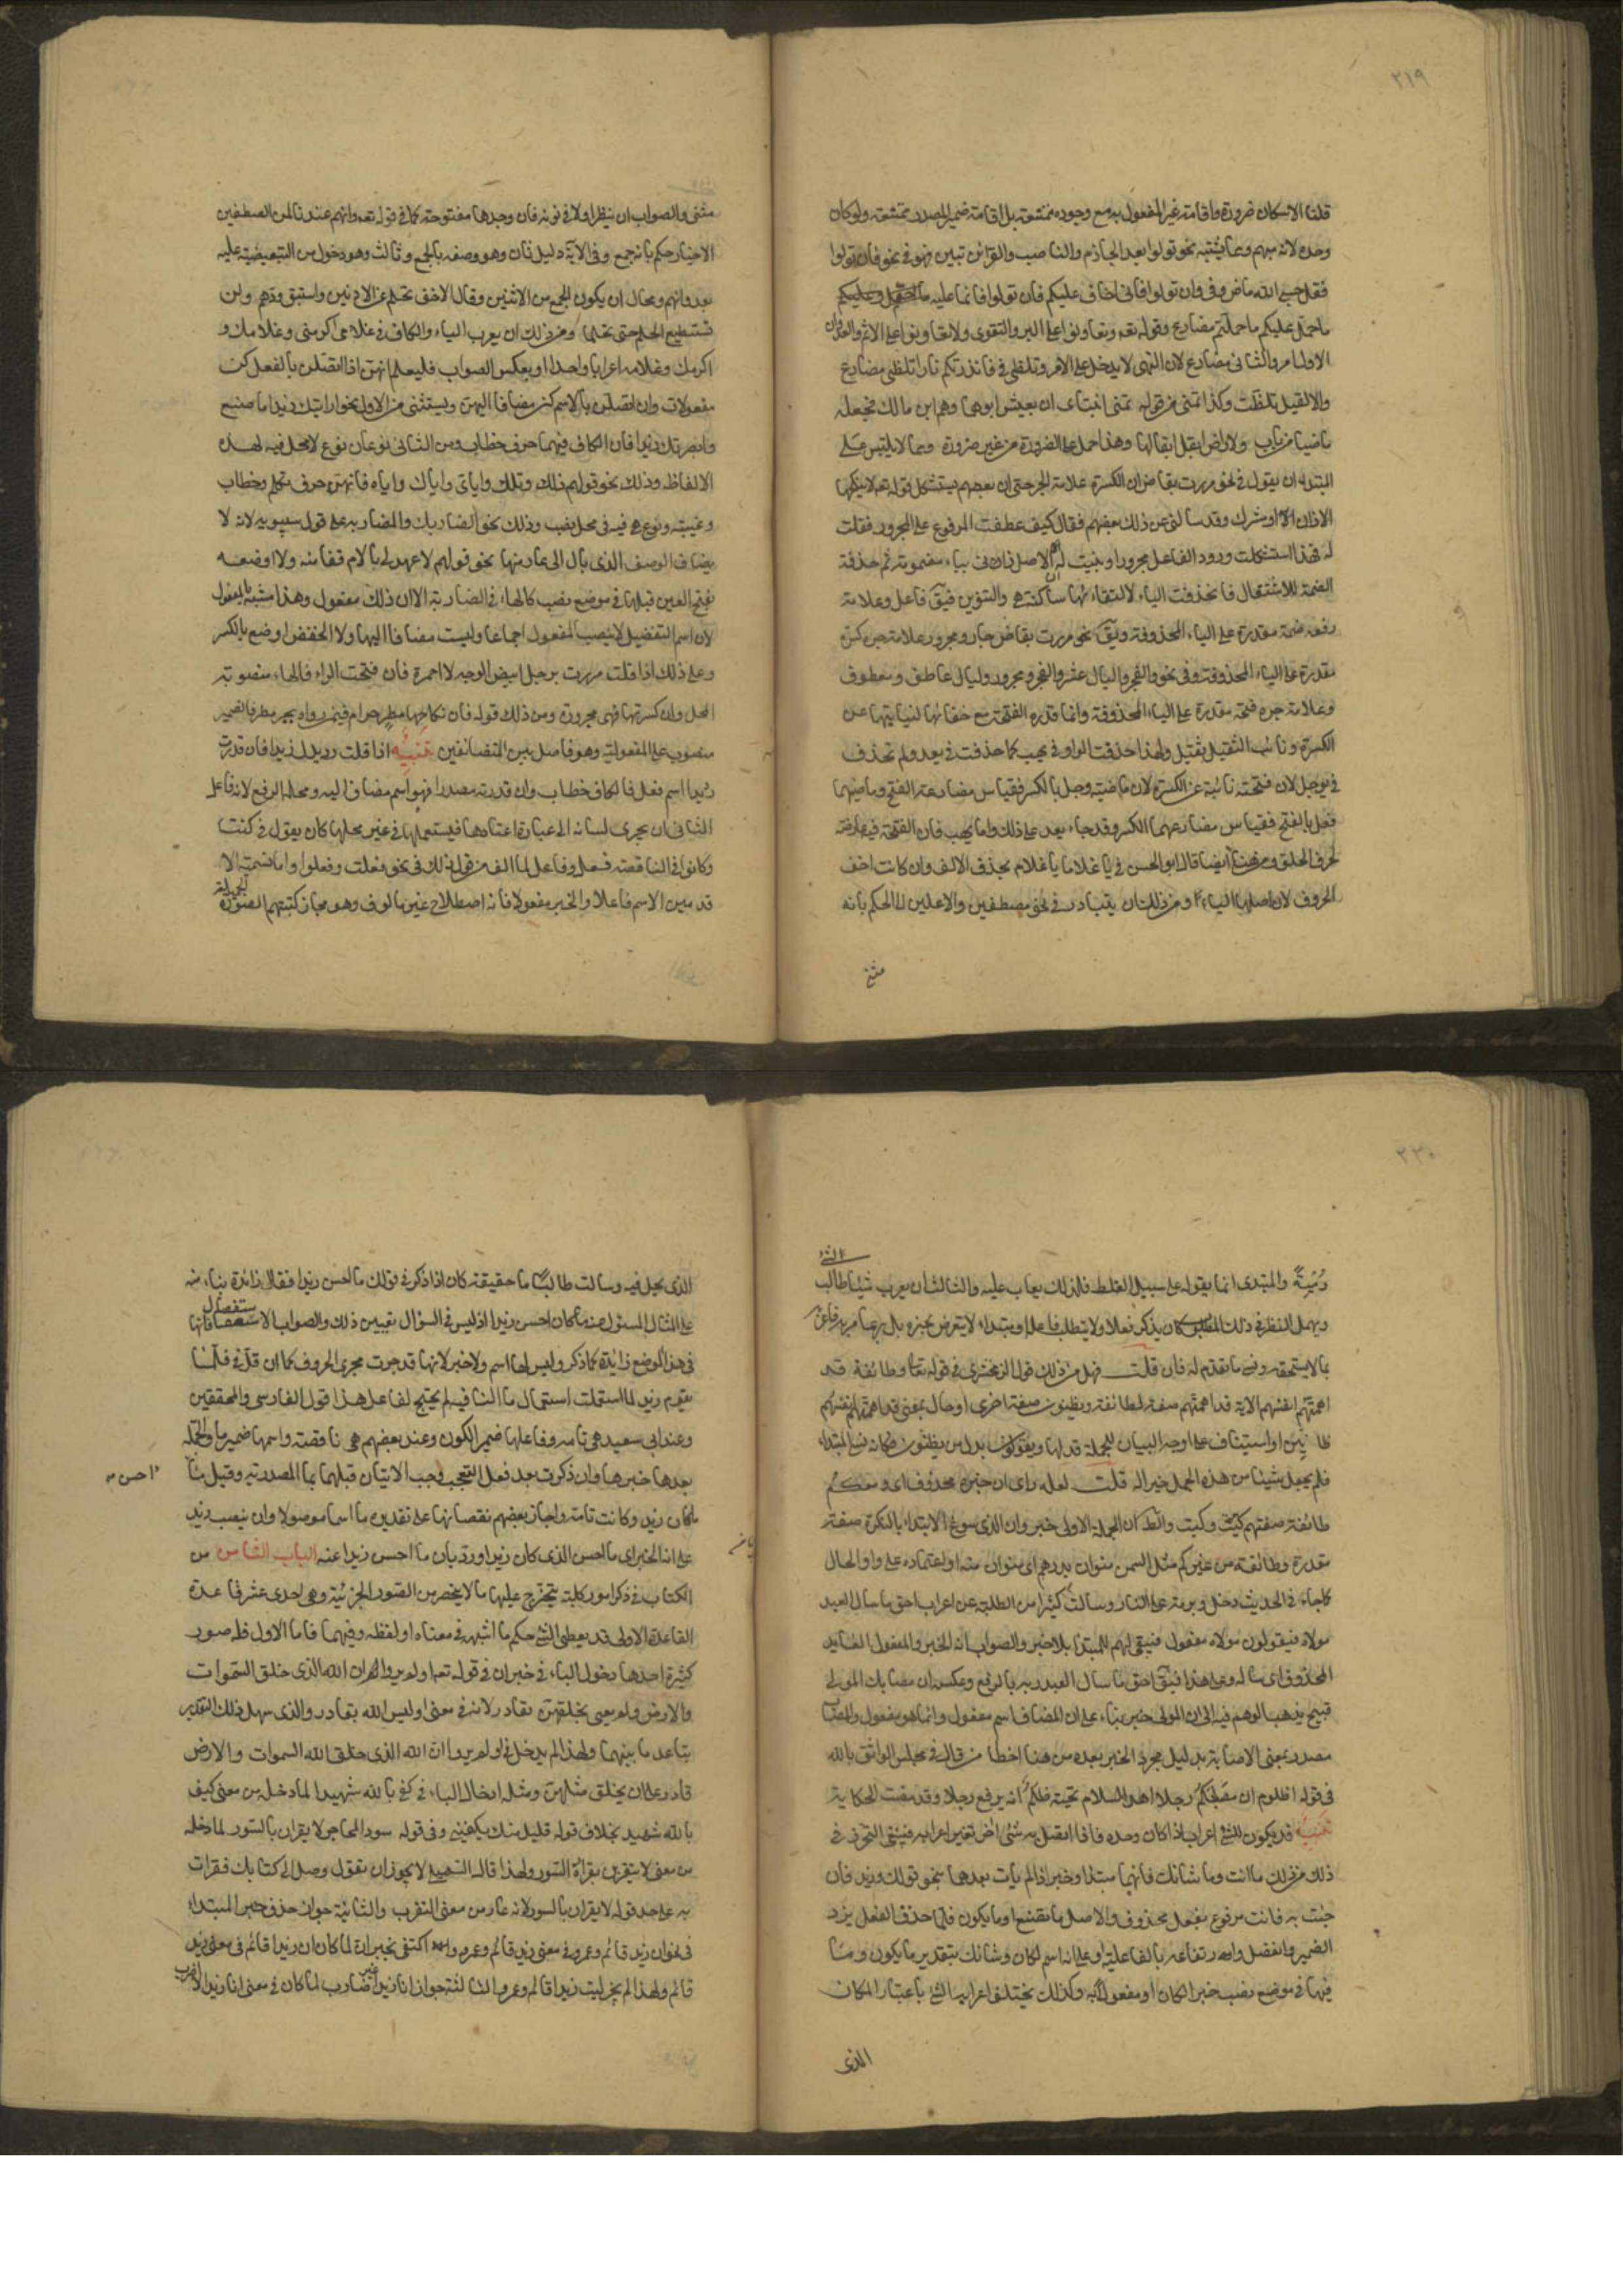 ٢١٩
قلنا الاسكان ضرورة واقامة غير المفعول به مع وجوده ممتنعة بل اقامة ضمير المصدر ممتنعة ولو كان
وحده لانه مبهم ومما يشتبه نحو تولوا بعد الجازم والناصب والقرائن تبين فهو في نحو فان تولوا
فقل حسبي الله ماض وفي وان تولوا فاني اخاف عليكم فان تولوا فانما عليه ما حمل وعليكم
ما حمل عليكم ما حملتم مضارع وقوله تعه وتعاونوا على البر والتقوى ولا تعاونوا على الاثم والعدوان
الاول امر والثاني مضارع لان النهى لا يدخل على الامر وتلظى في فانذرتكم نارا تلظى مضارع
والا لقيل تلظت وكذا تمنى من قوله تمنى ابنتاى ان يعيش ابوهما وهم ابن مالك فجعله
ماضيا من باب ولا ارض ابقل ابقالها وهذا حمل على الضرورة من غير ضرورة ومما لا يلتبس على
المبتدى ان يقول في نحو مررت بقاض ان الكسرة علامة الجر حتى ان بعضهم يستشكل قوله تعه لا ينكحها
الا زان او مشرك وقد سالنى عن ذلك بعضهم فقال كيف عطفت المرفوع على المجرور فقلت
له فهلا استشكلت ورود الفاعل مجرورا وبينت له ان الاصل زانى بياء مضمومة ثم حذفت
الضمة للاستثقال فانحذفت الياء لالتقائها ساكنة هي والتنوين فيق فاعل وعلامة
رفعه ضمة مقدرة على الياء المحذوفة ويق في نحو مررت بقاض جار ومجرور علامة جره كسرة
مقدرة على الياء المحذوفة وفي نحو والفجر وليال عشر والفجر جار ومجرور وليال عاطف ومعطوف
وعلامة جره فتحة مقدرة على الياء المحذوفة وانما قدرت الفتحة مع خفتها لنيابتها عن
الكسرة ونائب الثقيل ثقيل ولهذا حذفت الواو في يهب كما حذفت في يعد ولم تحذف
في يوجل لان فتحته نائبة عن الكسرة لان ماضيه وجل بالكسر فقياس مضارعه الفتح وماضيهما
فعل بالفتح فقياس مضارعهما الكسر وقد جاء يعد على ذلك واما يهب فان الفتحة فيه عارضة
لحرف الحلق ومن هنا ايضا قال ابو الحسن في يا غلاما يا غلام بحذف الالف وان كانت اخف
الحروف لان اصلها الياء ومن ذلك ان يتبادر في نحو مصطفين والاعلين الى الحكم بانه
مثنى
مثنى والصواب ان ينظر اولا في نونه فان وجدها مفتوحة كما في قوله تعه وانهم عندنا لمن المصطفين
الاخيار حكم بانه جمع وفي الاية دليل ثان وهو وصفه بالجمع وثالث وهو دخول من التبعيضية عليه
بعد وانهم ومحال ان يكون الجمع من الاثنين وقال الاحنف تحلم عن الادنين واستبق ودهم ولن
تستطيع الحلم حتى تحلما ومن ذلك ان يعرب الياء والكاف في غلامى اكرمنى وغلامك و
اكرمك وغلامه اعرابا واحدا او بعكس الصواب فليعلم انهن اذا اتصلن بالفعل كن
مفعولات وان اتصلن بالاسم كن مضافا اليهن ويستثنى من الاول نحو ارايتك زيدا ما صنع
وابصرتك زيدا فان الكاف فيهما حرف خطاب ومن الثانى نوعان نوع لا محل فيه لهذه
الالفاظ وذلك نحو قولهم ذلك وتلك واياى واياك واياه فانهن حرف تكلم وخطاب
وغيبة ونوع هي فيه في محل نصب وذلك نحو الضاربك والضاربه على قول سيبويه لانه لا
يضاف الوصف الذى بال الى عار منها نحو قولهم لا عهد لى بالام قفا منه ولا اوضعه
بفتح العين قبلها في موضع نصب كالهاء في الضاربه الا ان ذلك مفعول وهذا مشبه بالمفعول
لان اسم التفضيل لا ينصب المفعول اجماعا وليست مضافا اليها والا لخفض اوضع بالكسر
وعلى ذلك اذا قلت مررت برجل ابيض الوجه لا احمره فان فتحت الراء فالهاء منصوبة
المحل وان كسرتها فهى مجرورة ومن ذلك قوله فان نكاحها مطر حرام فيمن رواه بجر مطر فالضمير
منصوب على المفعولية وهو فاصل بين المتضائفين تنبيه اذا قلت رويدك زيدا فان قدرت
رويدا اسم فعل فالكاف خطاب وان قدرته مصدرا فهو اسم مضاف اليه ومحله الرفع لانه فاعل
الثانى ان يجرى لسانه الى عبارة اعتادها فيستعملها في غير محلها كان يقول في كنت
وكانوا في الناقصة فعل وفاعل لما الف من قول ذلك في نحو فعلت وفعلوا واما تسمية الا
قدمين الاسم فاعلا والخبر مفعولا فانه اصطلاح غير مالوف وهو مجاز كتسميتهم الصورة
٢٢٠
دمية والمبتدى انما يقوله على سبيل الغلط فلذلك يعاب عليه والثالث ان يعرب شيئا طالبا
لشئ
ويهمل النظر في ذلك المطلوب كان يذكر فعلا ولا يتطلب فاعله او مبتداء لا يتعرض لخبره بل ربما مر به فاعربه
بما لا يستحقه ونسى ما تقدم له فان قلت فهل من ذلك قول الزمخشرى في قوله تعا وطائفة قد
اهمتهم انفسهم الاية قد اهمتهم صفة لطائفة ويظنون صفة اخرى او حال بمعنى قد اهمتهم انفسهم
ظانين او استيناف على وجه البيان للجملة قبلها ويقولون بدل من يظنون فكانه نسى المبتداء
فلم يجعل شيئا من هذه الجمل خبرا له قلت لعله راى ان خبره محذوف اى ومعكم
طائفة صفتهم كيت وكيت والظ ان الجملة الاولى خبر وان الذى سوغ الابتداء بالنكرة صفة
مقدرة وطائفة من غيركم مثل السمن منوان بدرهم اى منوان منه او اعتماده على واو الحال
كما جاء في الحديث دخل وبرمة على النار وسالت كثيرا من الطلبة عن اعراب احق ما سال العبد
مولاه فيقولون مولاه مفعول فيبقى لهم المبتدا بلا خبر والصواب انه الخبر والمفعول العايد
المحذوف اى ساله وعلى هذا فيق احق ما سال العبد ربه بالرفع وعكسه ان مصابك المولى
قبيح يذهب الوهم فيه الى ان المولى خبر بناء على ان المصاب اسم مفعول وانما هو مفعول والمصاب
مصدر بمعنى الاصابة بدليل مجئ الخبر بعده من هنا اخطا من قال في مجلس الواثق بالله
في قوله اظلوم ان مصابكم رجلا اهدى السلام تحية ظلم انه يرفع رجلا وقد مضت الحكاية
تنبيه قد يكون للشئ اعراب اذا كان وحده فاذا اتصل به شئ اخر تغير اعرابه فينبغى التحرز في
ذلك من ذلك ما انت وما شانك فانهما مبتدا وخبر اذا لم يات بعدهما نحو قولك وزيد فان
جئت به فانت مرفوع بفعل محذوف والاصل ما تصنع او ما تكون فلما حذف الفعل برز
الضمير وانفصل وارتفاعه بالفاعلية او على انه اسم لكان وشانك بتقدير ما يكون وما
فيهما في موضع نصب خبرا لكان او مفعولا به وكذلك يختلف اعراب الشئ باعتبار المكان
الذى
الذى يحل فيه وسالت طالبا ما حقيقة كان اذا ذكر في قولك ما احسن زيدا فقال زائدة بناء منه
على المثال المسئول عنه ما كان احسن زيدا اذ ليس في السؤال تعيين ذلك والصواب الاستفصال فانها
في هذا الموضع زائدة كما ذكر وليس لها اسم ولا خبر لانها قد جرت مجرى الحروف كما ان قل في قلما
يقوم زيد لما استعملت استعمال ما النافية لم يحتج لفاعل هذا قول الفارسى والمحققين
وعند ابى سعيد هى تامه وفاعلها ضمير الكون وعند بعضهم هى ناقصة واسمها ضمير ما والجملة
بعدها خبرها وان ذكرت بعد فعل التعجب وجب الاتيان قبلها بما المصدرية وقيل ما
احسن
ما كان زيد وكانت تامة واجاز بعضهم نقصانها على تقدير ما اسما موصولا وان ينصب زيد
على انه الخبر اى ما احسن الذى كان زيدا ورد بان ما احسن زيدا عنه الباب الثامن من
الكتاب في ذكر امور كلية يتخرج عليها ما لا ينحصر من الصور الجزئية وهى احدى عشر قاعدة
القاعدة الاولى قد يعطى الشئ حكم ما اشبهه في معناه او لفظه وفيهما فاما الاول فله صور
كثيرة احدها دخول الباء في خبر ان في قوله تعه اولم يروا ان الله الذى خلق السموات
والارض ولم يعى بخلقهن بقادر لانه في معنى اوليس الله بقادر والذى سهل ذلك التقدير
تباعد ما بينهما ولهذا لم يدخل في اولم يروا ان الله الذى خلق الله السموات والارض
قادر على ان يخلق مثلهن ومثله ادخال الباء في كفى بالله شهيدا لما دخله من معنى كيف
بالله شهيد بخلاف قوله قليل منك يكفينى وفى قوله سود المحاجر لا يقران بالسور لما دخله
من معنى لا يتقربن بقراة السور ولهذا قال السهيلى لا يجوز ان تقول وصل الى كتابك فقرات
به على حد قوله لا يقران بالسور لانه عار من معنى التقرب والثانية جواز حذف خبر المبتداء
في نحو ان زيد قائم وعمرو في معنى زيد قائم وعمرو اكتفى بخبر ان لما كان ان زيدا قائم في معنى زيد
قائم ولهذا لم يجز ليت زيدا قائم وعمرو الثالثة جواز انا زيدا غير ضارب لما كان في معنى انا زيدا لا اضرب